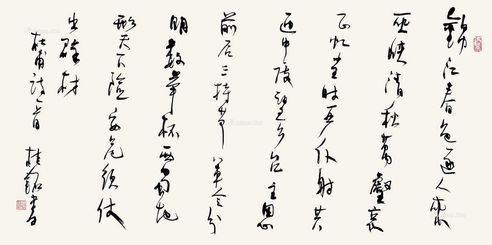 錦江春色逐人来
巫峡清秋萬壑哀
正忆往时严仆射共
迎中使望乡台主恩
前后三持节军令分
明数举杯西蜀地
形天下险安危须仗
出群材
杜甫诗一首 桂 书